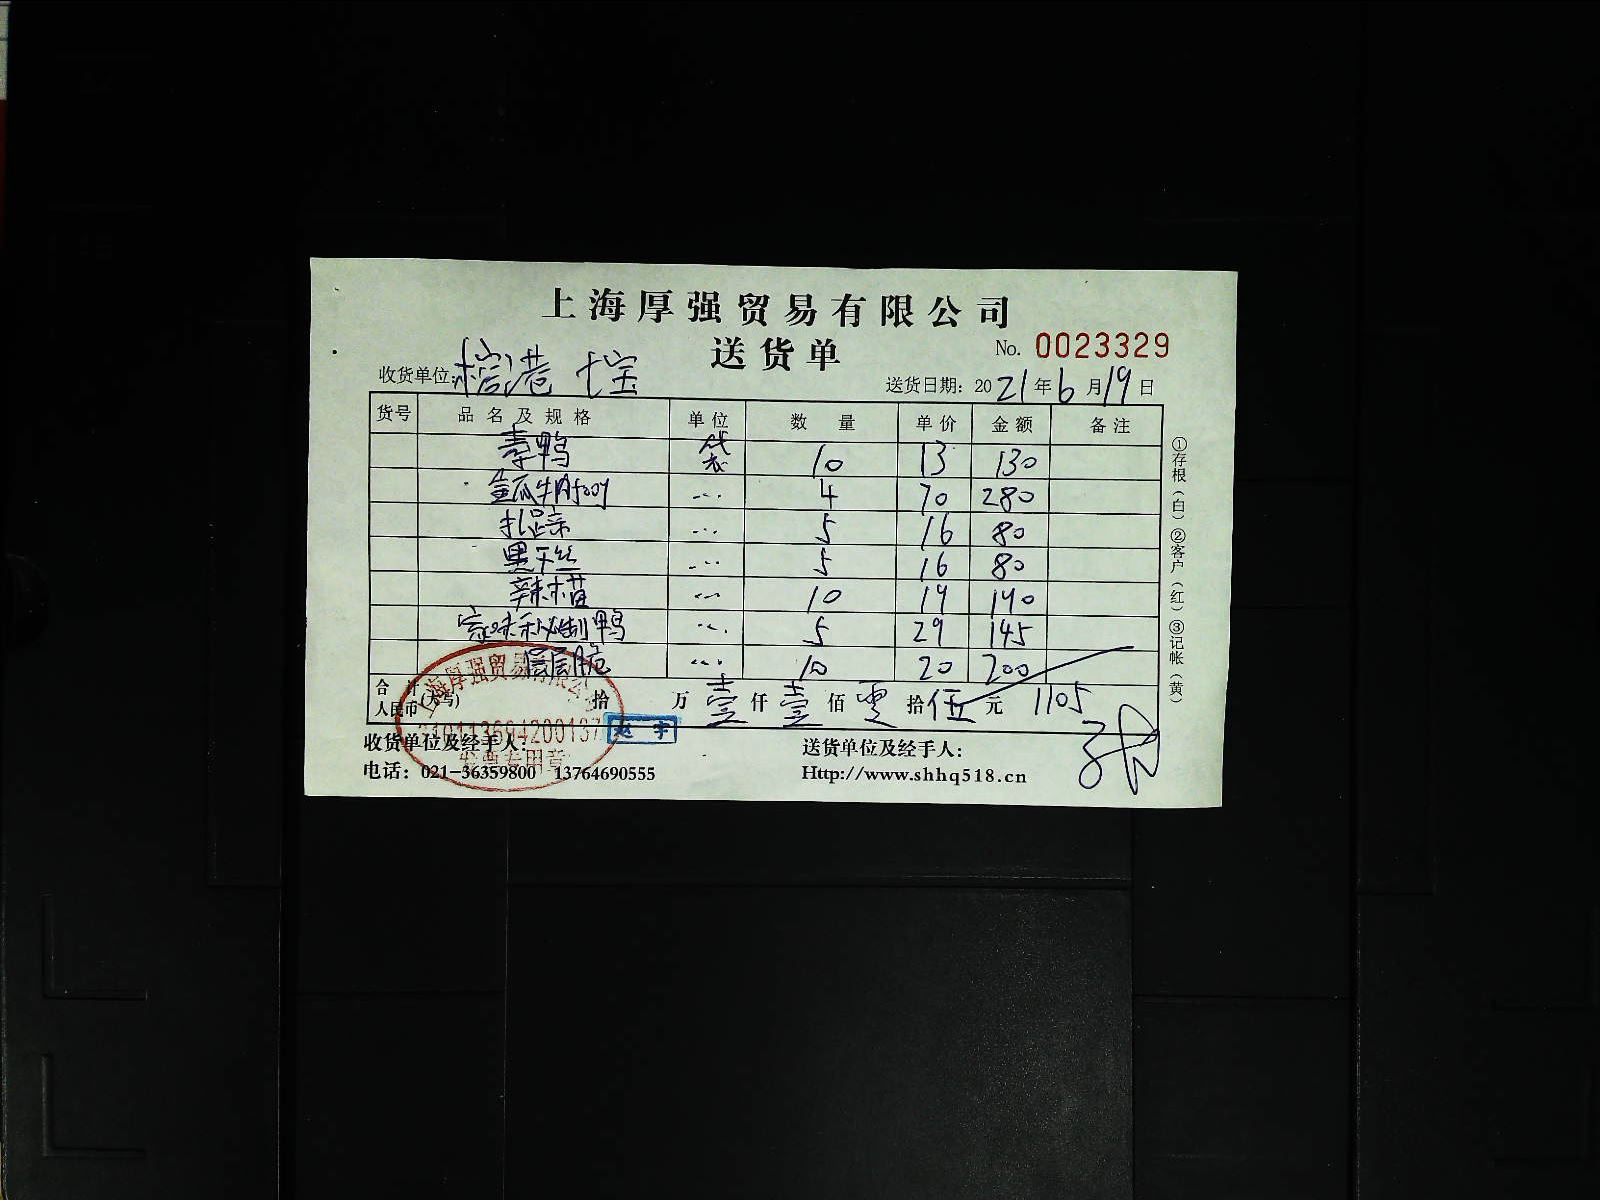 上海厚强贸易有限公司
送货单
No. 0023329
收货单位: 港 七宝
送货日期: 2021年6月19日
货号 品名及规格 单位 数量 单价 金额 备注
素鸭 袋 10 13 130
金瓜牛肉500g ... 4 70 280
扎蹄 ... 5 16 80
黑干丝 ... 5 16 80
辣 ... 10 19 190
家味秘制鸭 ... 5 29 145
层层脆 ... 10 20 200
合计
人民币(大写) 拾 万 壹 仟 壹 佰 零 拾 伍 元 1105
收货单位及经手人:
送货单位及经手人:
电话: 021-36359800 13764690555
Http://www.shhq518.cn
①存根(白)②客户(红)③记帐(黄)
上海厚强贸易有限公司
发票专用章